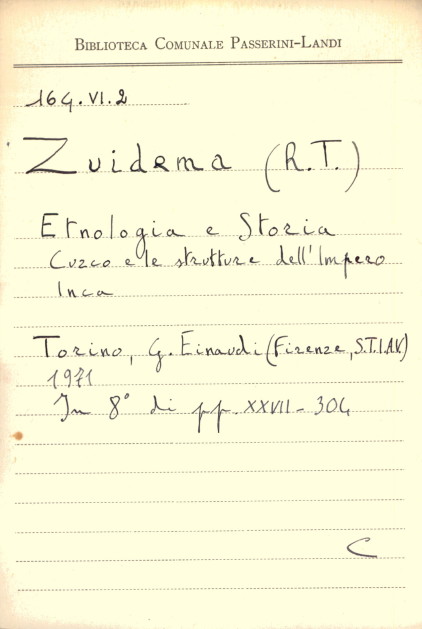 BIBLIOTECA COMUNALE PASSERINI-LANDI
164.VI.2
Zuidema (R.T.)
Etnologia e Storia
Cuzco e le strutture dell'Impero
Inca
Torino, G. Einaudi (Firenze, S.T.I.A.V.)
1971
In 8° di pp. XXVII-304
C